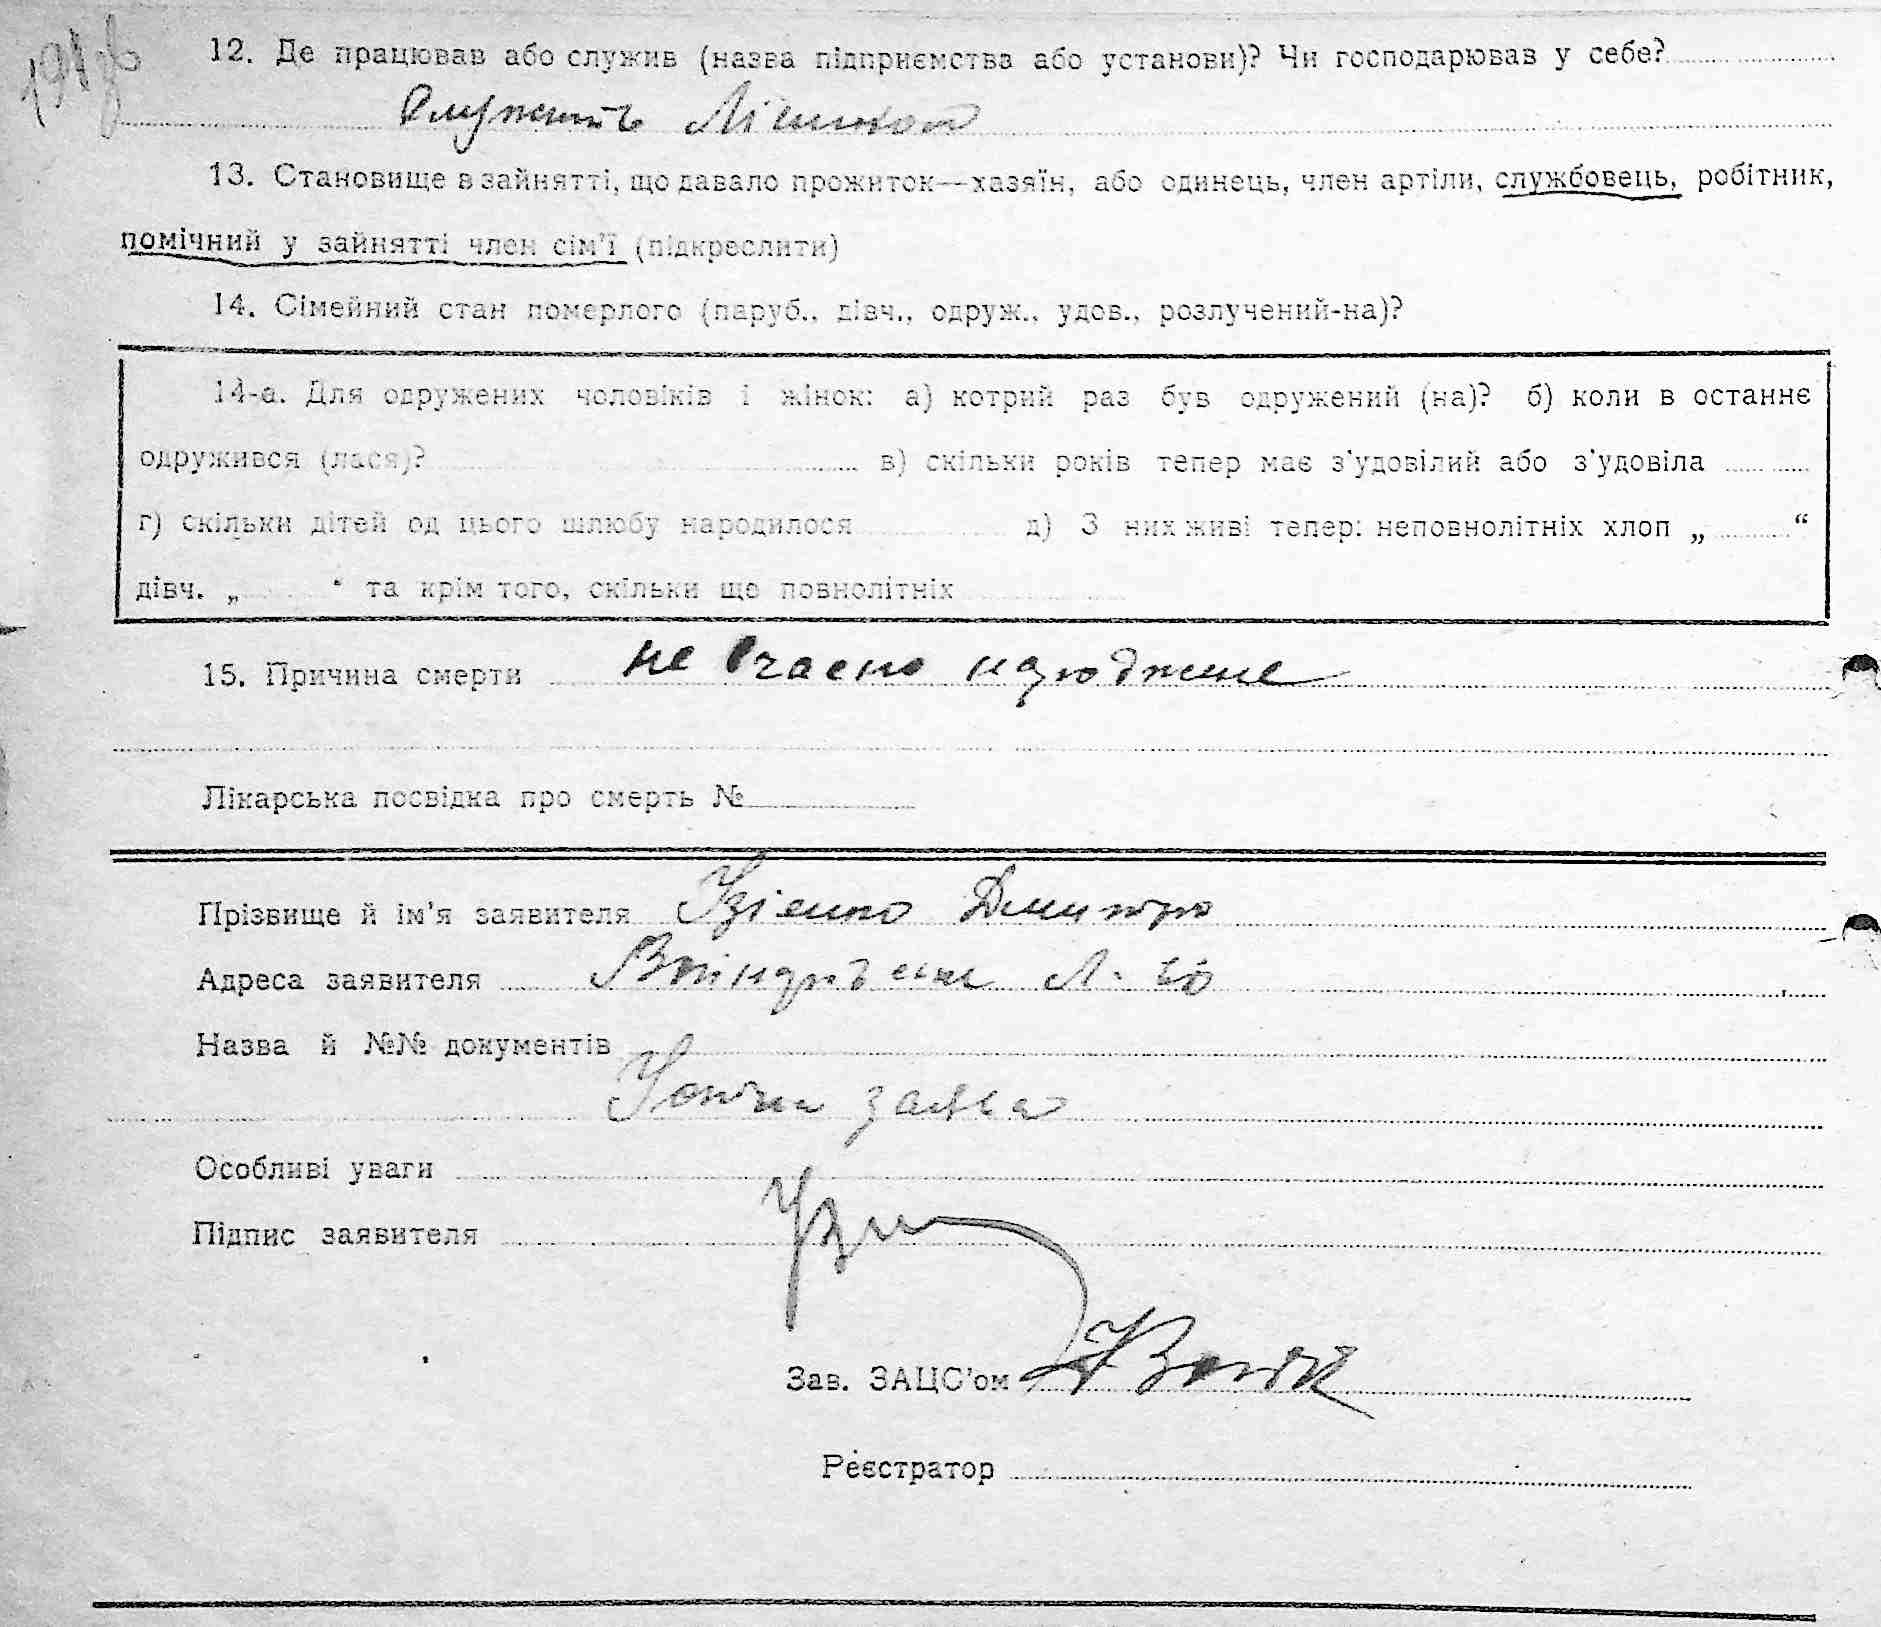 12. Де працював або служив (назва підприємства або установи)? Чи господарював у себе?
служить
13. Становище в зайнятті, що давало прожиток—хазяїн, або одинець, член артіли, службовець, робітник,
помічний у зайнятті член сім'ї (підкреслити)
14. Сімейний стан померлого (паруб., дівч., одруж., удов., розлучений-на)?
14-а. Для одружених чоловіків і жінок: а) котрий раз був одружений (на)? б) коли в останнє
одружився (лася)? в) скільки років тепер має з'удовілий або з'удовіла
г) скільки дітей од цього шлюбу народилося д) З них живі тепер: неповнолітніх хлоп „ “
дівч. „ “ та крім того, скільки ще повнолітніх
15. Причина смерти не вчасно народжене
Лікарська посвідка про смерть №
Прізвище й ім'я заявителя Дмитро
Адреса заявителя
Назва й №№ документів
Усна заява
Особливі уваги
Підпис заявителя
Зав. ЗАЦС'ом
Реєстратор